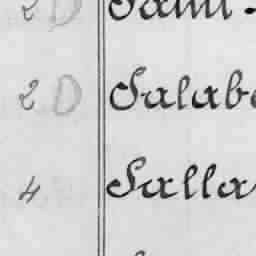 2 D
2 D Salab
4 Salla